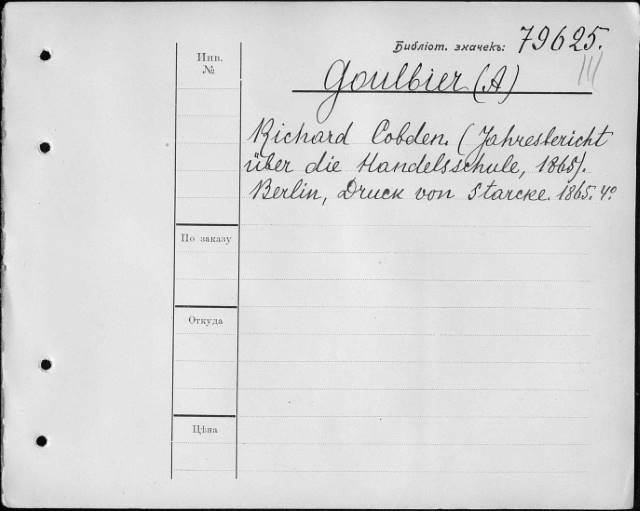 Библіот. значекъ: 79625.
Инв. №
Goulbier (A)
Richard Cobden. (Jahresbericht
über die Handelsschule, 1865).
Berlin, Druck von Starcke. 1865. 4°
По заказу
Откуда
Цѣна